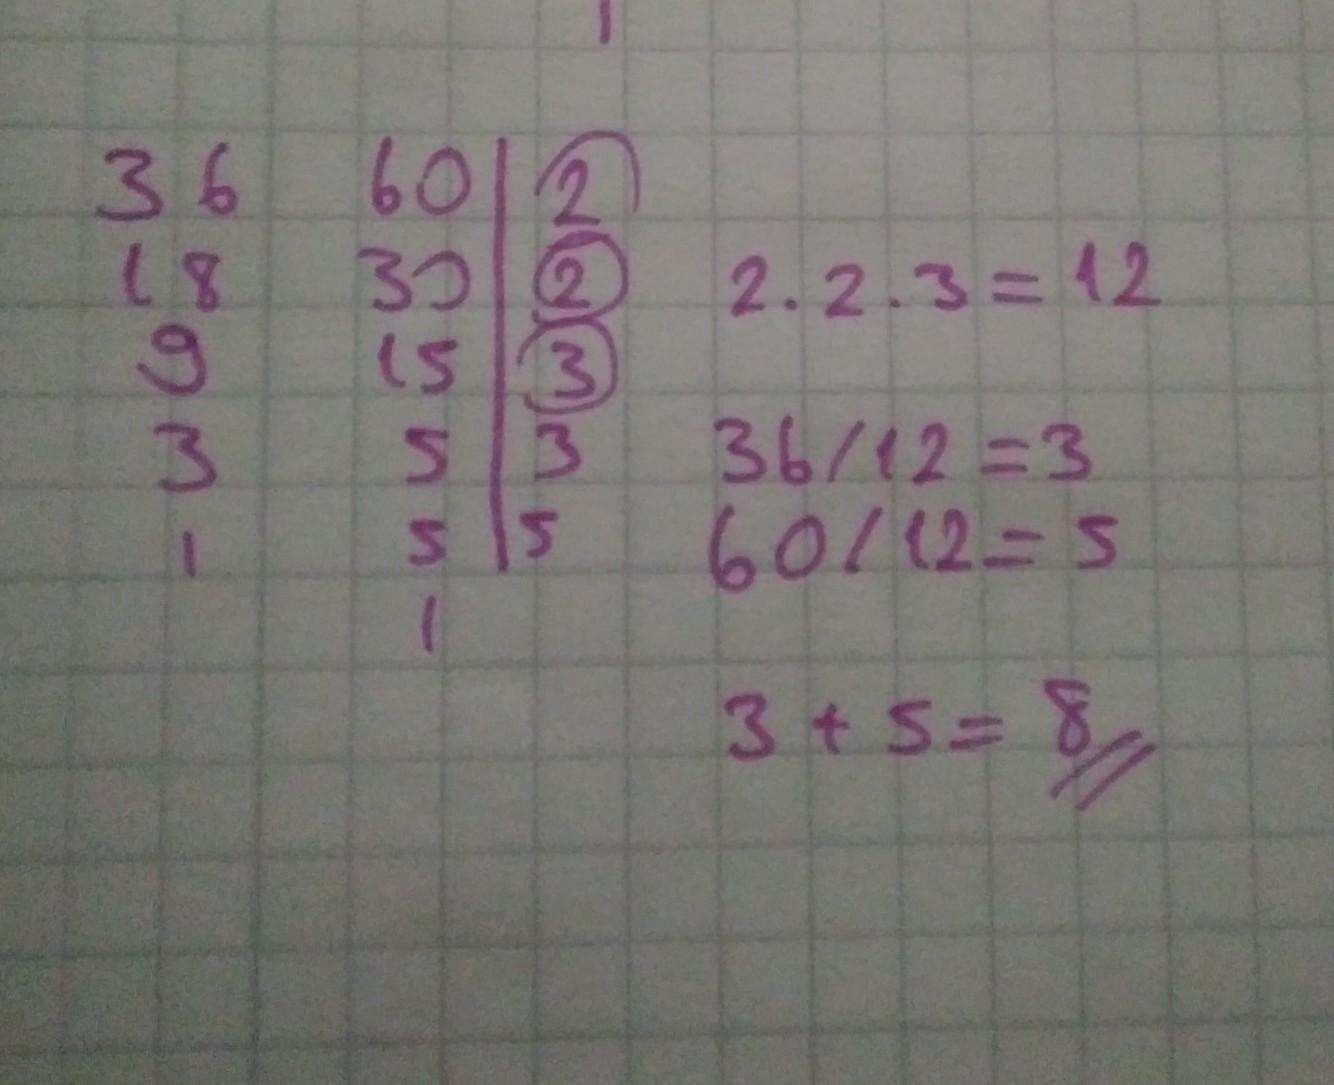 36 60 | 2
18 30 | 2
9 15 | 3
3 5 | 3
1 5 | 5
1
2.2.3=12
36/12=3
60/12=5
3+5=8